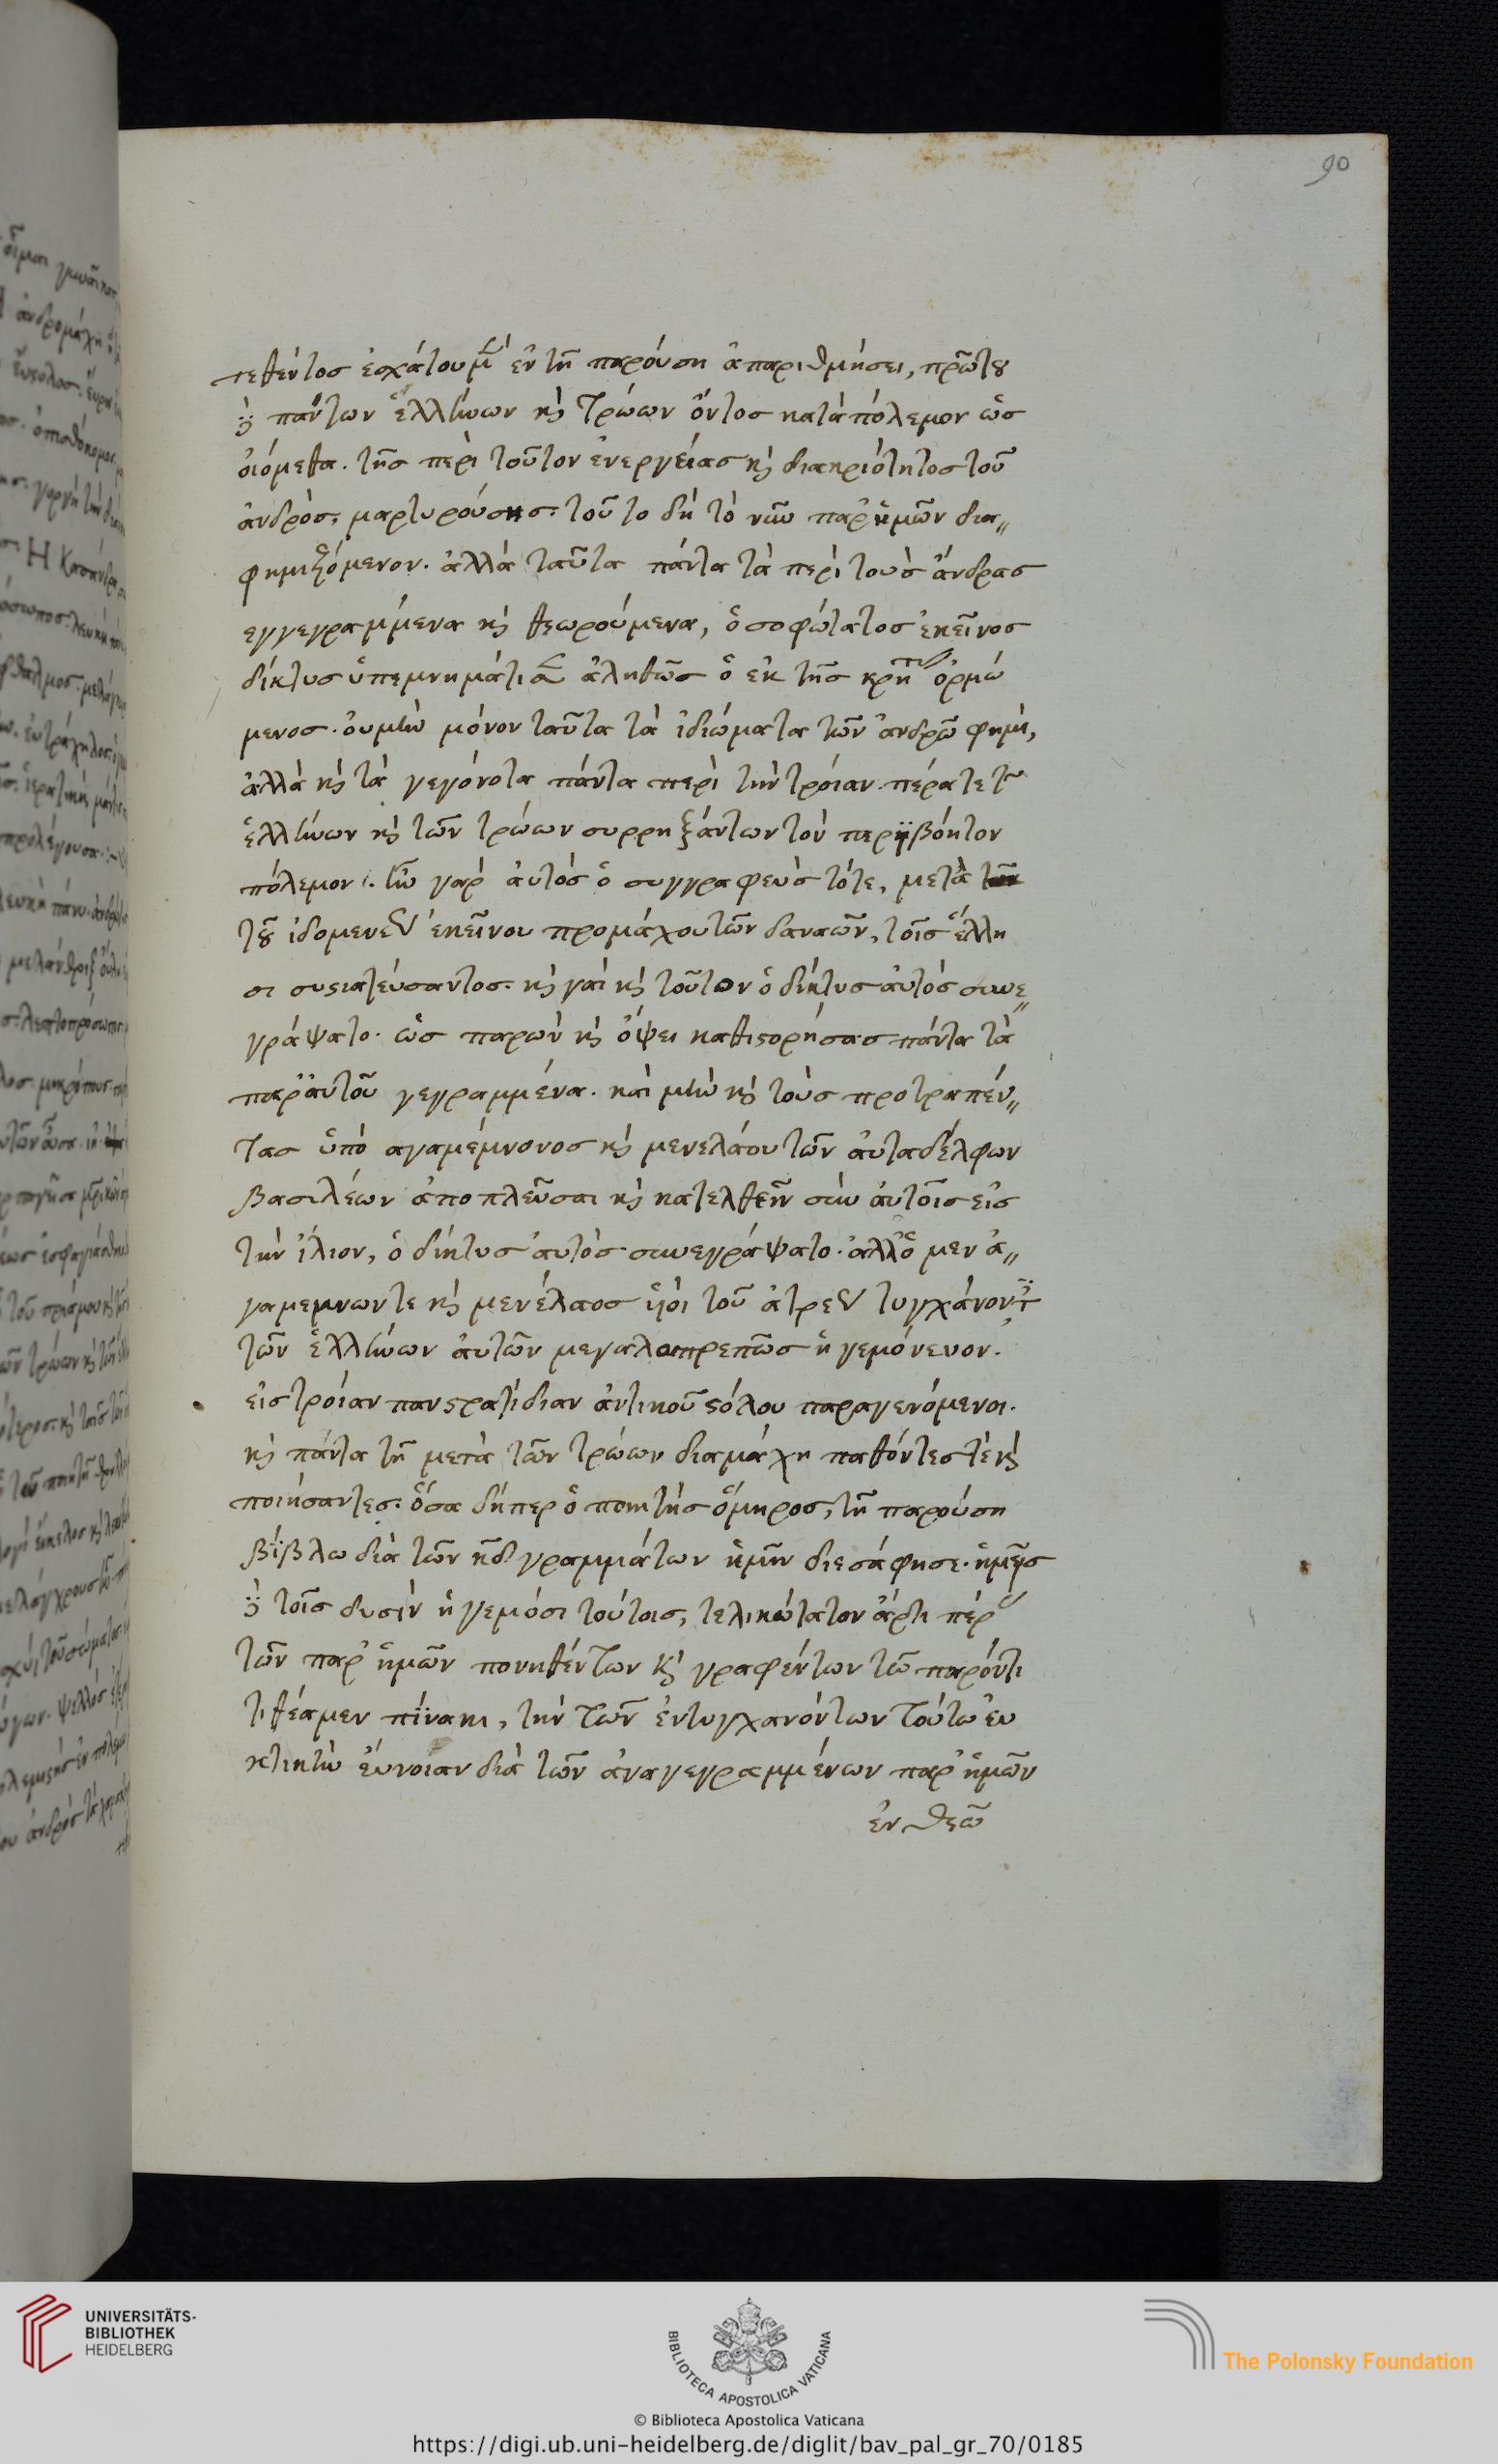 90
τεθέντος ἐσχάτου μ̅ ἐν τῆ παρούση ἀπαριθμήσει, πρώτου
δὲ πάντων ἑλλήνων καὶ τρώων ὄντος κατὰ πόλεμον ὡς
οἰόμεθα. τῆς περὶ τοῦτον ἐνεργείας καὶ διακριότητος τοῦ
ἀνδρὸς, μαρτυρούσης τοῦτο δὴ τὸ νῦν παρ' ἡμῶν δια〃
φημιζόμενον. ἀλλὰ ταῦτα πάντα τὰ περὶ τοὺς ἄνδρας
εγγεγραμμένα καὶ θεωρούμενα, ὁ σοφώτατος ἐκεῖνος
δίκτυς ὑπεμνημάτισεν ἀληθῶς ὁ ἐκ τῆς κρήτης ὁρμώ
μενος. ου μὴν μόνον ταῦτα τὰ ἰδιώματα τῶν ἀνδρῶν φημὶ,
ἀλλὰ καὶ τὰ γεγονότα πάντα περὶ τὴν τροίαν πέρα τε τῶν
ἑλλήνων καὶ τῶν τρώων συρρηξάντων τὸν περιβόητον
πόλεμον. ἦν γὰρ αὐτὸς ὁ συγγραφεὺς τότε, μετὰ
τοῦ ἰδομενέως ἐκείνου προμάχου τῶν δαναῶν, τοῖς ἕλλη
σι συστρατεύσαντος. καὶ γὰρ καὶ τοῦτον ὁ δίκτυς αὐτὸς συνε〃
γράψατο. ὡς παρὼν καὶ ὄψει καθιστορήσας πάντα τὰ
παρ' αὐτοῦ γεγραμμένα. καὶ μὴν καὶ τοὺς προτραπέν〃
τας ὑπὸ αγαμέμνονος καὶ μενελάου τῶν αὐταδέλφων
βασιλέων ἀποπλεῦσαι καὶ κατελθεῖν σὺν αὐτοῖς εἰς
τὴν ἴλιον, ὁ δίκτυς αὐτὸς συνεγράψατο. ἀλλ' ὁ μεν ἀ〃
γαμεμνων τε καὶ μενέλαος ὑιοὶ τοῦ ἀτρέως τυγχάνοντες
τῶν ἑλλήνων αὐτῶν μεγαλοπρεπῶς ἡγεμόνευον.
εἰς τροίαν πανστρατίδιαν ἀντικοῦ στόλου παραγενόμενοι.
καὶ πάντα τῆ μετὰ τῶν τρώων διαμάχη παθόντες τὲ καὶ
ποιήσαντες. ὅσα δήπερ ὁ ποιητὴς ὅμηρος, τῆ παρούση
βίβλω διὰ τῶν κδ γραμμάτων ἡμῖν διεσάφησε. ἡμεῖς
δὲ τοῖς δυσὶν ἡγεμόσι τούτοις, τελικώτατον ἄρτι πέρας
τῶν παρ' ἡμῶν πονηθέντων καὶ γραφέντων τῶ παρόντι
τιθέαμεν πίνακι, τὴν τῶν ἐντυγχανόντων τούτω ευ
κτικὴν εὔνοιαν διὰ τῶν ἀναγεγραμμένων παρ' ἡμῶν
ἐν θεῶ
UNIVERSITÄTS-
BIBLIOTHEK
HEIDELBERG
BIBLIOTECA APOSTOLICA VATICANA
The Polonsky Foundation
© Biblioteca Apostolica Vaticana
https://digi.ub.uni-heidelberg.de/diglit/bav_pal_gr_70/0185